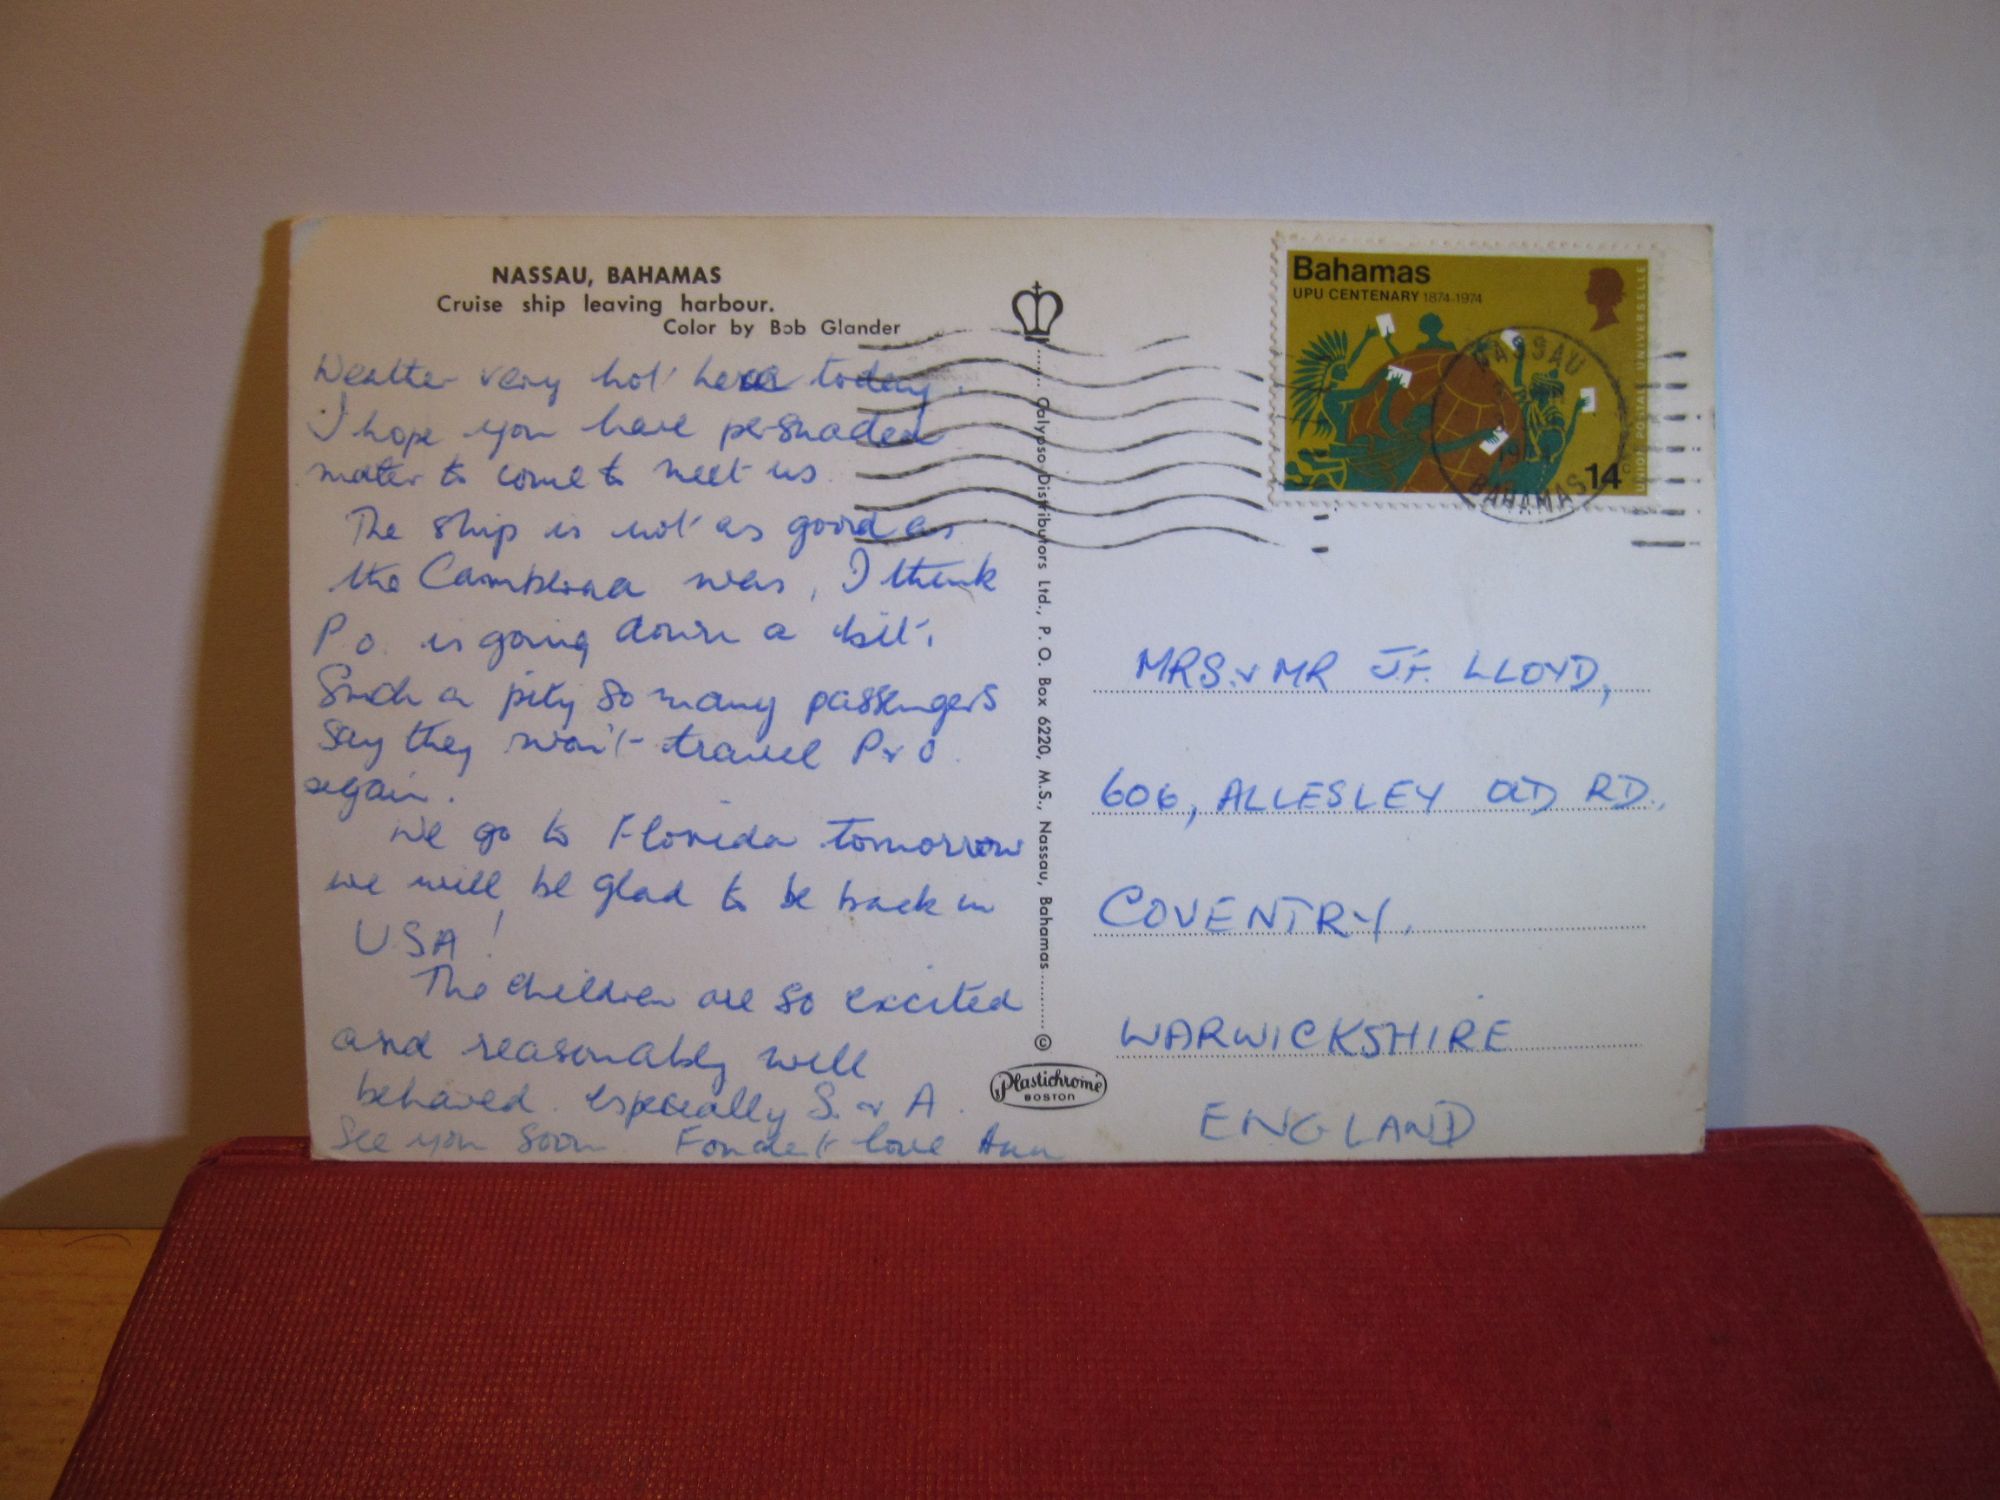 NASSAU, BAHAMAS
Cruise ship leaving harbour.
Color by Bob Glander
Weather very hot here today.
I hope you have persuaded
mater to come to meet us.
The ship is not as good as
the Canberra was, I think
P.O. is going down a bit.
Such a pity so many passengers
say they won't travel P & O.
again.
We go to Florida tomorrow
we will be glad to be back in
USA!
The children are so excited
and reasonably well
behaved. especially S. & A.
See you soon Fondest love Ann
Calypso Distributors Ltd., P. O. Box 6220, M.S., Nassau, Bahamas
©
Plastichrome
BOSTON
Bahamas
UPU CENTENARY 1874-1974
UNION POSTALE UNIVERSELLE
14c
NASSAU
BAHAMAS
MRS. & MR J.F. LLOYD,
606, ALLESLEY OLD RD.,
COVENTRY.
WARWICKSHIRE
ENGLAND